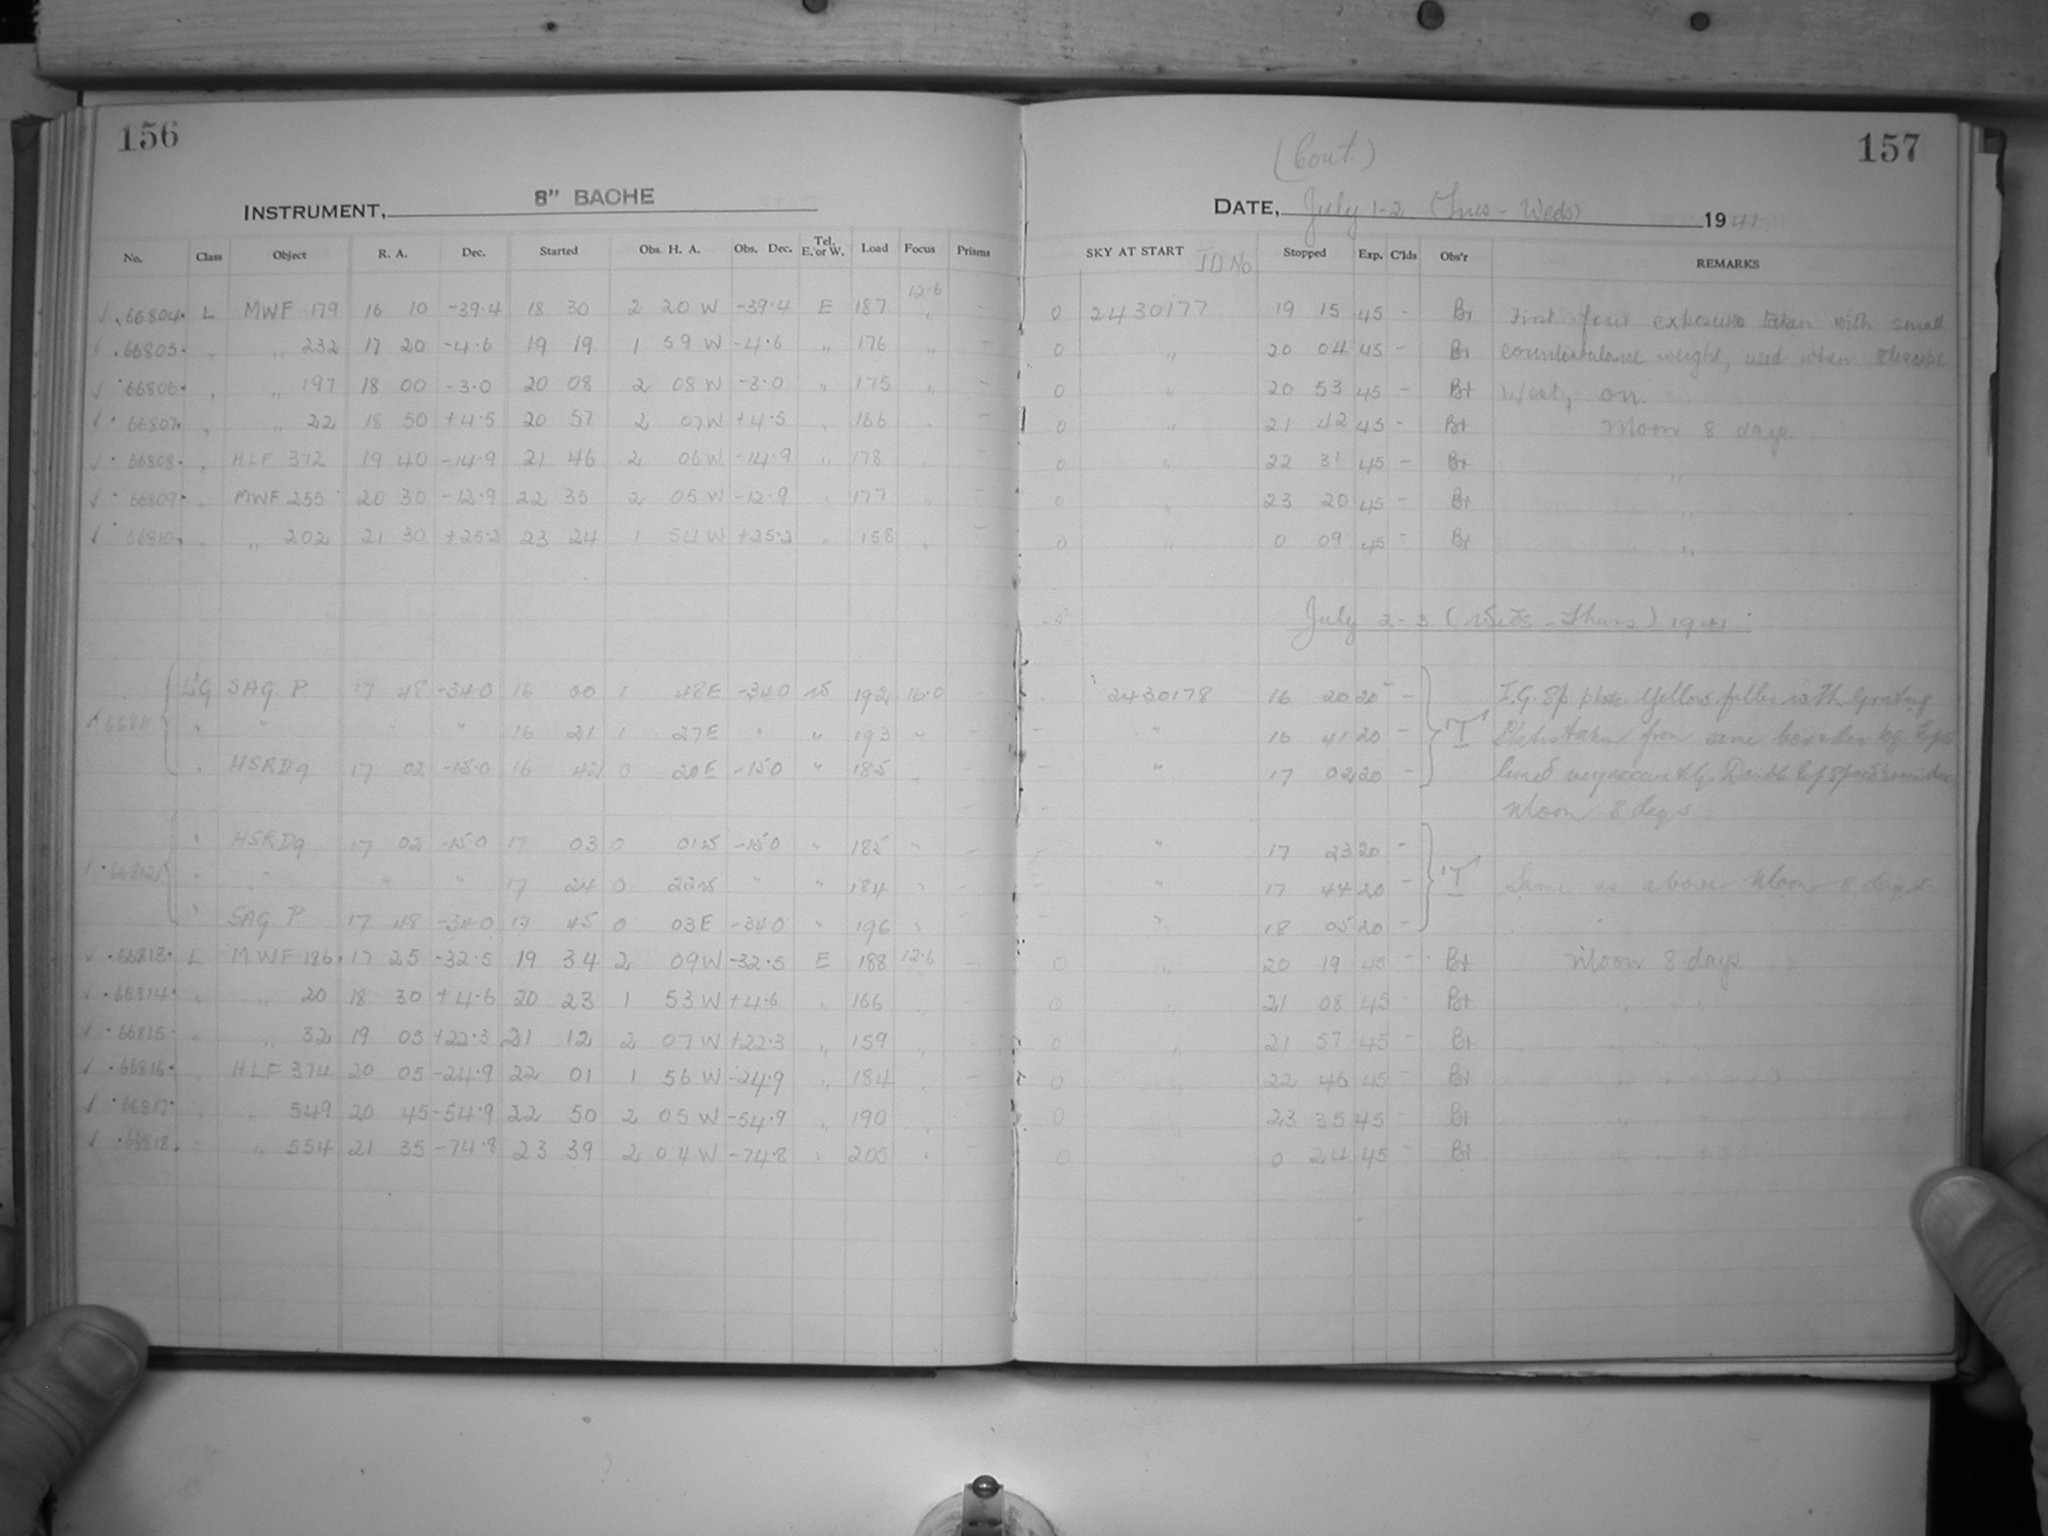 156
INSTRUMENT, 8" BACHE
No. Class Object R. A. Dec. Started Obs. H. A. Obs. Dec. Tel. E. or W. Load Focus Prisms
12.6
66804 L MWF 179 16 10 -39.4 18 30 2 20 W -39.4 E 187 „ -
66805 „ „ 232 17 20 -4.6 19 19 1 59 W -4.6 „ 176 „ -
66806 „ „ 197 18 00 -3.0 20 08 2 08 W -3.0 „ 175 „ -
66807 „ „ 22 18 50 +4.5 20 57 2 07 W +4.5 „ 166 „ -
66808 „ HLF 372 19 40 -14.9 21 46 2 06 W -14.9 „ 178 „ -
66809 „ MWF 255 20 30 -12.9 22 35 2 05 W -12.9 „ 177 „ -
66810 „ „ 202 21 30 +25.2 23 24 1 54 W +25.2 „ 158 „ -
SAG P 17 48 -34.0 16 00 1 48 E -34.0 W 192 16.0
66811 „ „ „ „ 16 21 1 27 E „ „ 193 „
„ HSRDq 17 02 -15.0 16 42 0 20 E -15.0 „ 185 „
„ HSRDq 17 02 -15.0 17 03 0 01 W -15.0 „ 185 „
66812 „ „ „ „ 17 24 0 22 W „ „ 184 „
„ SAG P 17 48 -34.0 17 45 0 03 E -34.0 „ 196 „
66813 L MWF 186 17 25 -32.5 19 34 2 09 W -32.5 E 188 12.6 -
66814 „ „ 20 18 30 +4.6 20 23 1 53 W +4.6 „ 166 „ -
66815 „ „ 32 19 05 +22.3 21 12 2 07 W +22.3 „ 159 „ -
66816 „ HLF 374 20 05 -24.9 22 01 1 56 W -24.9 „ 184 „ -
66817 „ „ 549 20 45 -54.9 22 50 2 05 W -54.9 „ 190 „ -
66818 „ „ 554 21 35 -74.8 23 39 2 04 W -74.8 „ 205 „ -
157
(Cont.)
DATE, July 1-2 (Tues - Weds) 1941
SKY AT START JD No Stopped Exp. C'lds Obs'r REMARKS
0 2430177 19 15 45 - Bt First four exposures taken with small
0 „ 20 04 45 - Bt counterbalance weight, used when telescope
0 „ 20 53 45 - Bt West, on.
0 „ 21 42 45 - Bt Moon 8 days
0 „ 22 31 45 - Bt „
0 „ 23 20 45 - Bt „
0 „ 0 09 45 - Bt „
July 2-3 (Weds - Thurs) 1941
2430178 16 20 20 - I.G. Sp Yellow filter with Grating
„ 16 41 20 - taken from same
„ 17 02 20 -
Moon 8 days
„ 17 23 20 -
„ 17 44 20 - Same as above Moon 8 days
„ 18 05 20 -
0 „ 20 19 45 - Bt Moon 8 days
0 „ 21 08 45 - Bt „
0 „ 21 57 45 - Bt
0 „ 22 46 45 - Bt
0 „ 23 35 45 - Bt
0 „ 0 24 45 - Bt